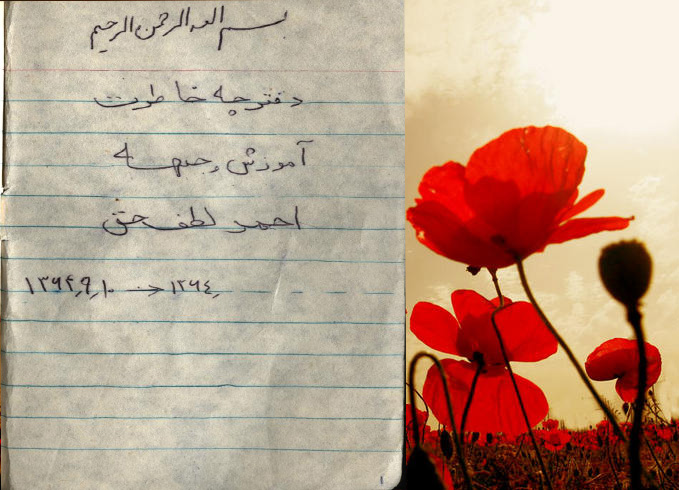 بسم الله الرحمن الرحیم
دفترچه خاطرات
آموزش و جبهه
احمد لطف حق
۱۳۶۴/۹/۱۰ ← ۱۳۶٤